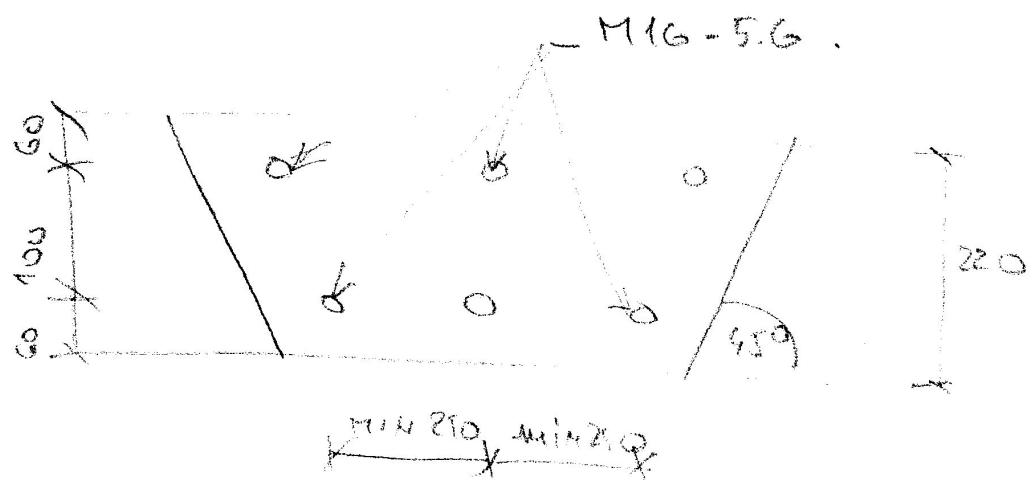 M16-5.6.
60
100
60
220
45°
MIN 210 min 210